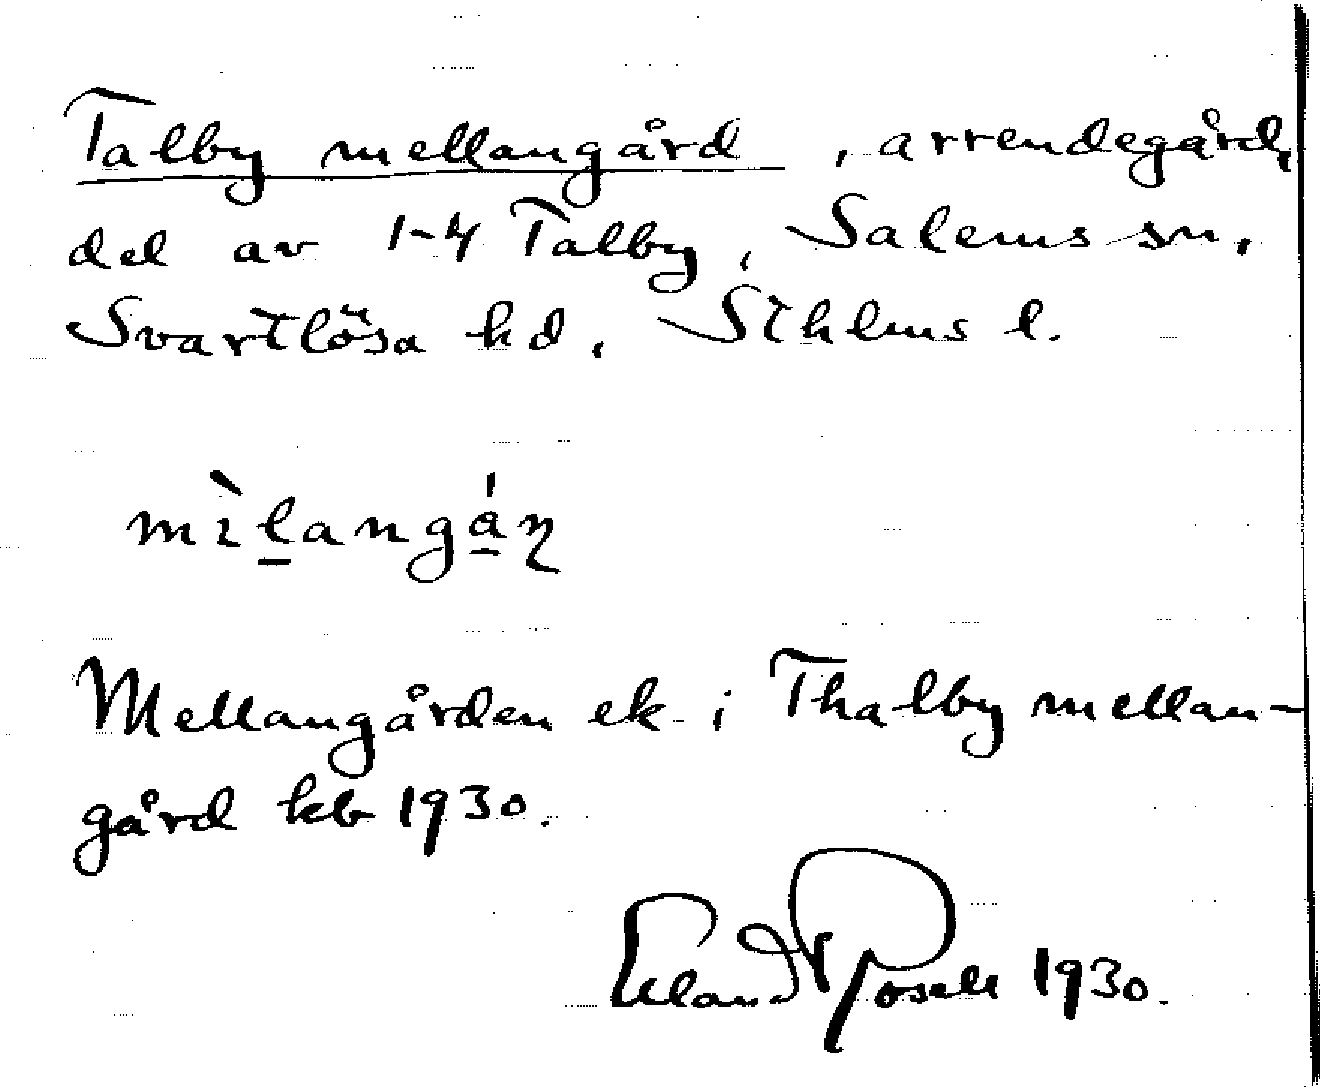 Talby mellangård, arrendegård,
del av 1-4 Talby, Salems sn,
Svartlösa hd, Sthlms l.
mɩ̀langán
Mellangården ek. i Thalby mellan-
gård kb 1930.
Erland Rosell 1930.